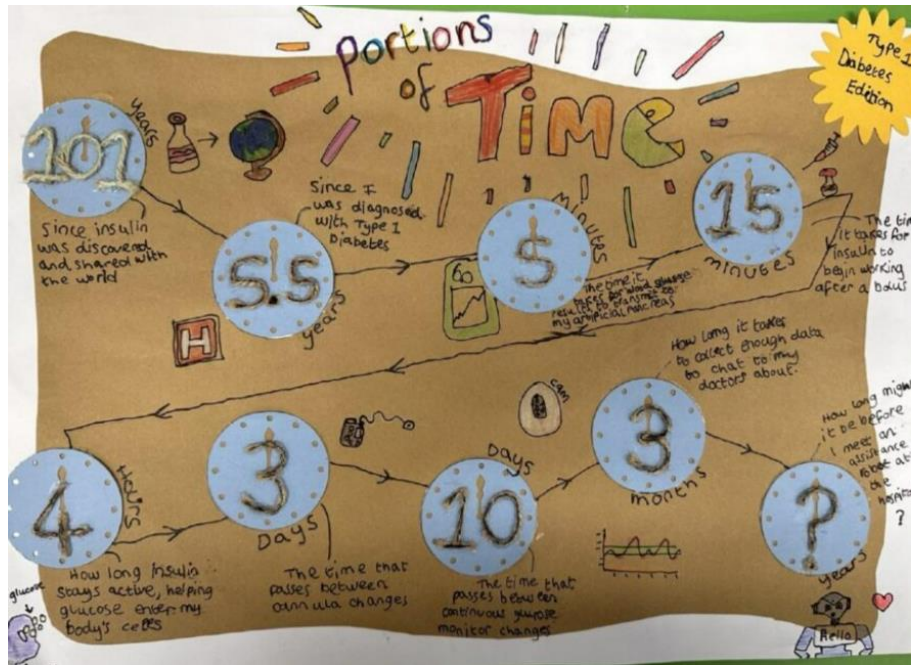 Portions
of
TIME
Type 1
Diabetes
Edition
101
years
Since insulin
was discovered
and shared with
the world
5.5
years
Since I
was diagnosed
with Type 1
Diabetes
5
minutes
The time it
takes for blood
results to transmit to
my artificial pancreas
60
15
minutes
The
it takes for
insulin to
begin working
after a bolus
H
4
Hours
How long insulin
stays active, helping
glucose enter my
body's cells
glucose
3
Days
The time that
passes between
cannula changes
10
Days
The time that
passes between
continuous glucose
monitor changes
CGM
3
months
How long it takes
to collect enough data
to chat to my
doctors about.
?
years
How long
it be before
I meet an
assistance
robot at
the
hospital
?
Hello